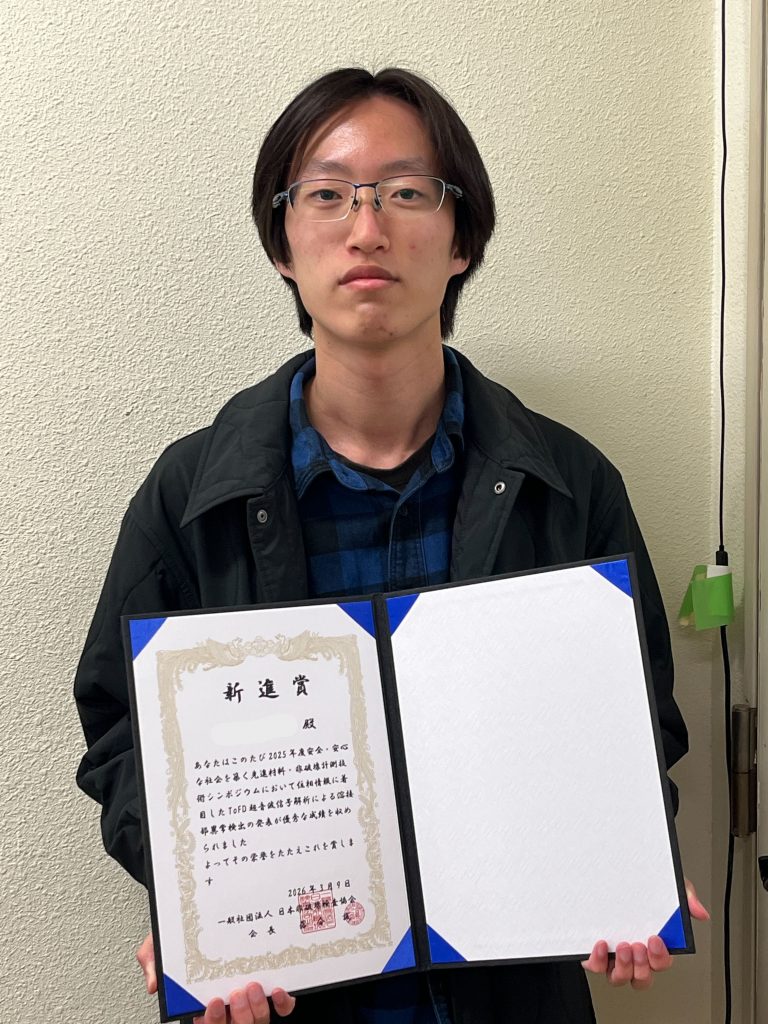 新進賞
殿
あなたはこのたび2025年度安全・安心
な社会を築く先進材料・非破壊計測技
術シンポジウムにおいて位相情報に着
目したToFD超音波信号解析による溶接
部異常検出の発表が優秀な成績を収め
られました
よってその栄誉をたたえこれを賞しま
す
2026年3月9日
一般社団法人 日本非破壊検査協会
会長